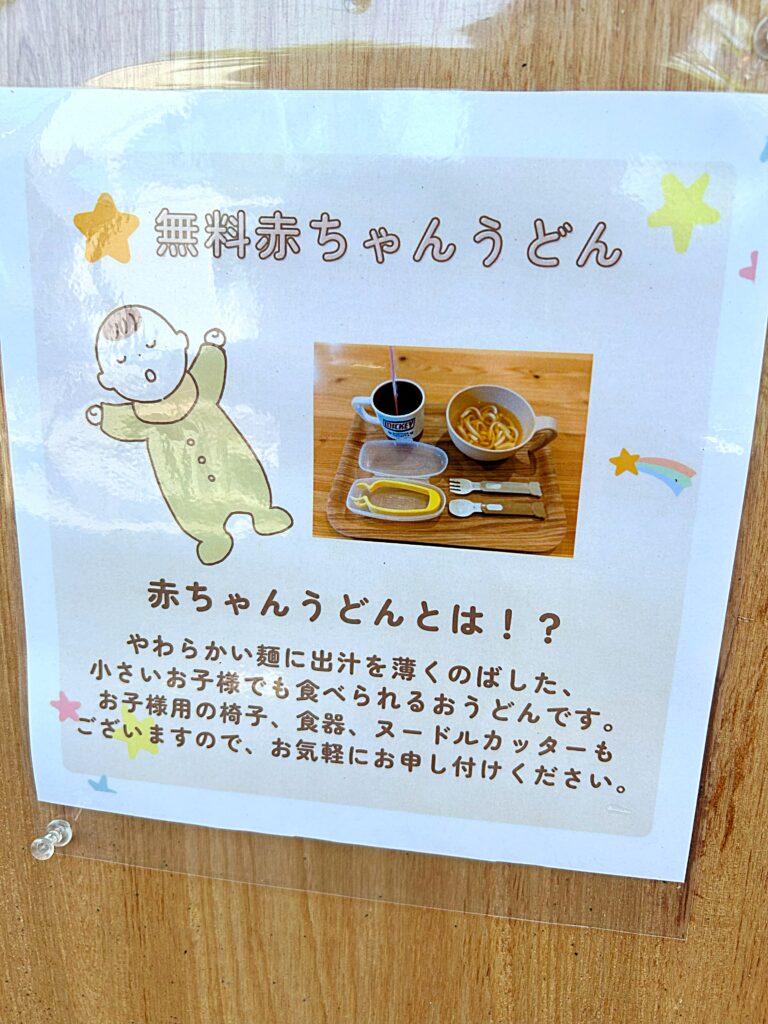 無料赤ちゃんうどん
MICKEY
赤ちゃんうどんとは！？
やわらかい麺に出汁を薄くのばした、
小さいお子様でも食べられるおうどんです。
お子様用の椅子、食器、ヌードルカッターも
ございますので、お気軽にお申し付けください。